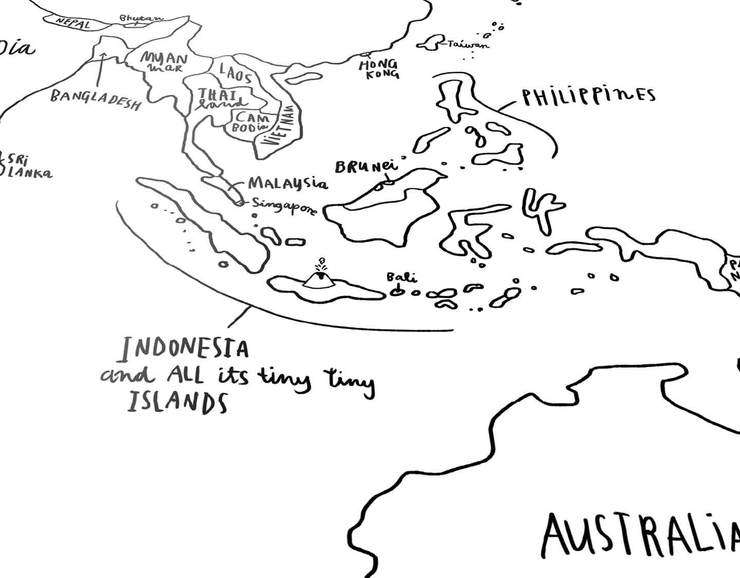 NEPAL
Bhutan
Dia
MYAN
MAR
BANGLADESH
LAOS
THAI
land
CAM
BODIA
VIETNAM
HONG
KONG
Taiwan
PHILIPPINES
SRI
LANKA
MALAYSIA
Singapore
BRUNEI
Bali
INDONESIA
and ALL its tiny tiny
ISLANDS
AUSTRALIA